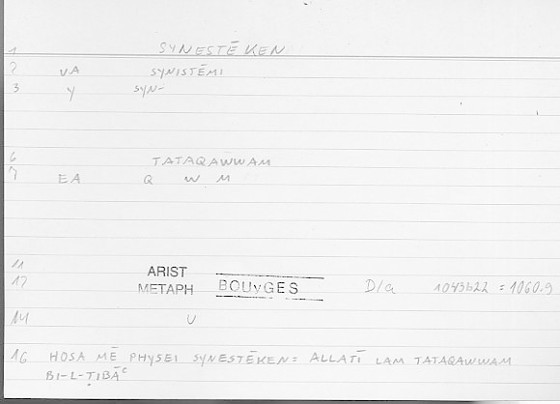 1 SYNESTĒKEN
2 VA SYNISTĒMI
3 Y SYN-
6 TATAQAWWAM
7 EA Q W M
11 ARIST
12 METAPH BOUYGES D/a 1043b22 = 1060.9
14 U
16 HOSA MĒ PHYSEI SYNESTĒKEN = ALLATĪ LAM TATAQAWWAM
BI-L-ṬIBĀᶜ